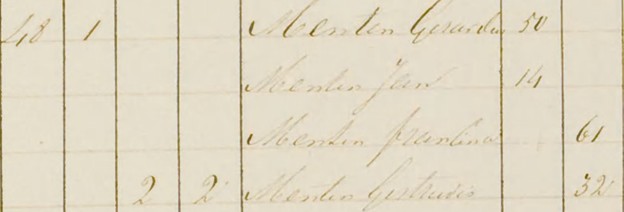 48 1 Menten Gerardus 50
Menten Jean 14
Menten 61
2 2 Menten Gertrudis 32